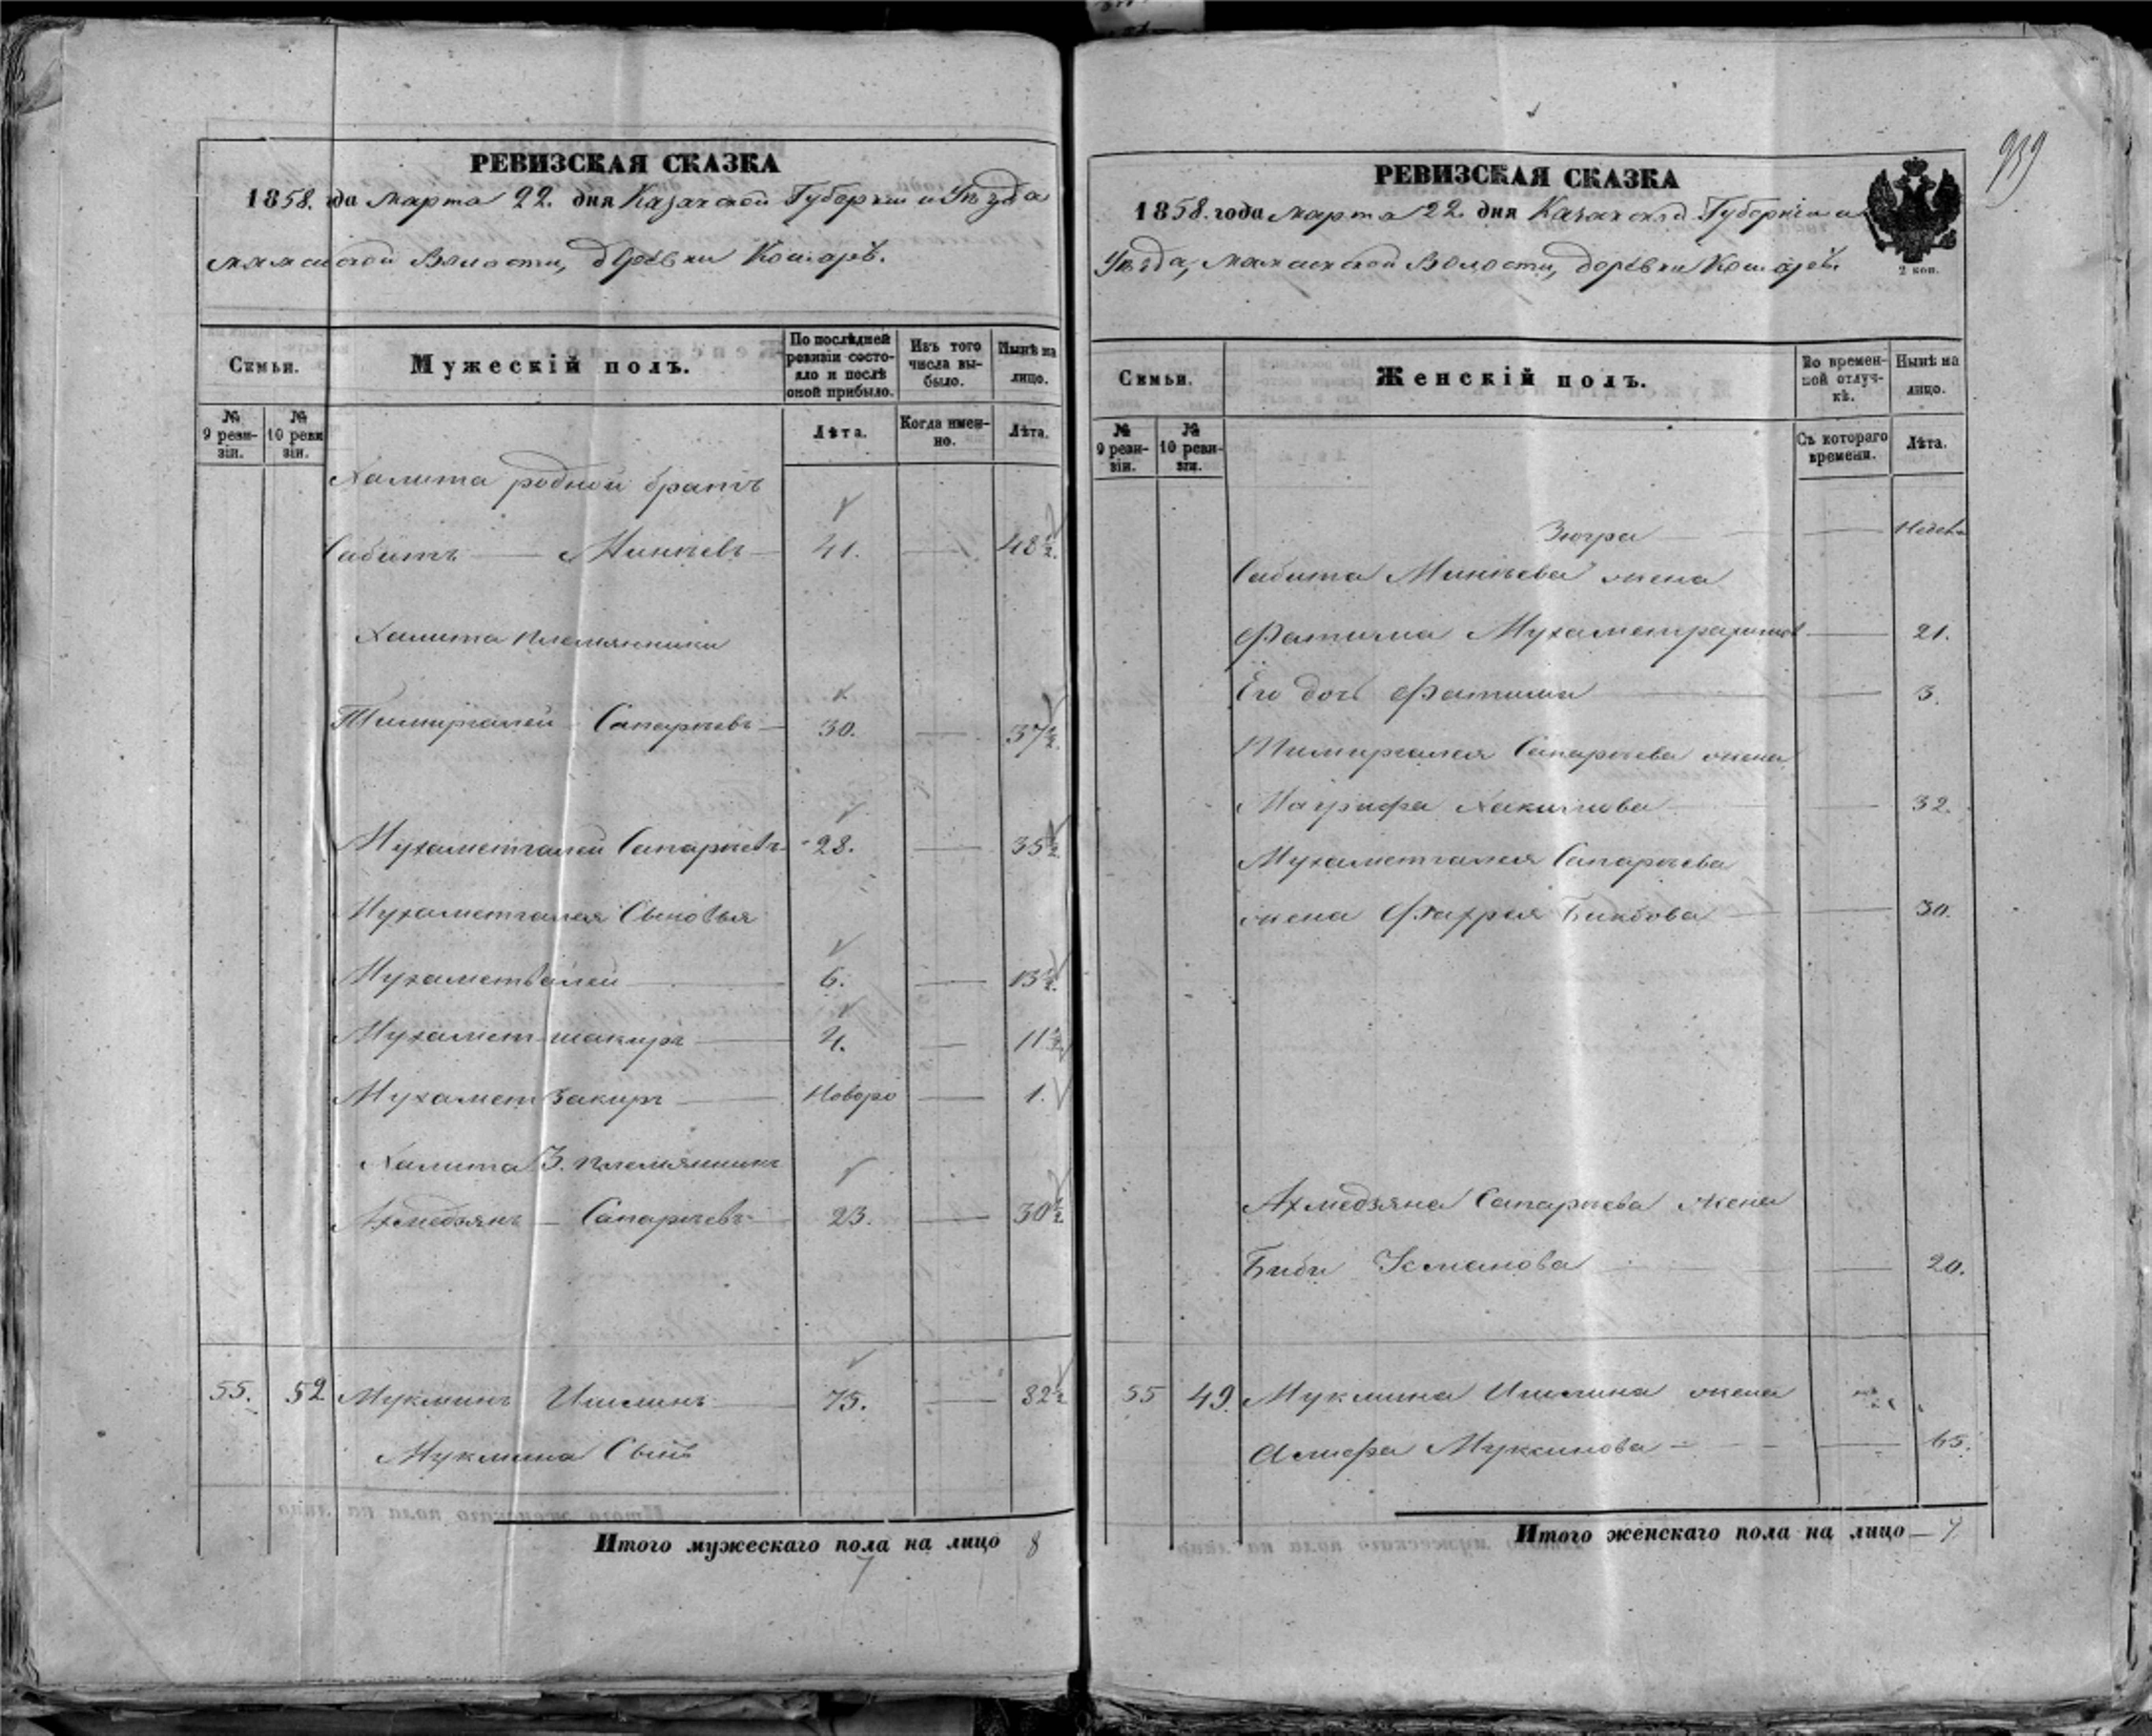 939
РЕВИЗСКАЯ СКАЗКА
1858. да Марта 22. дня Казанской Губернiи и Уѣзда
Мамсинской Волости, деревни Кошаръ.
Семьи.
Мужескiй полъ.
По послѣдней ревизiи состояло и послѣ оной прибыло.
Изъ того числа выбыло.
Нынѣ на лицо.
№ 9 ревизiи.
№ 10 ревизiи.
Лѣта.
Когда именно.
Лѣта.
Халита родной братъ
Сабитъ — Минѣевъ — 41. — 48½.
Халита племянники
Тимиргалей Сапарыевъ — 30. — 37½.
Мухаметгалей Сапарыевъ 28. — 35½
Мухаметгалея Сыновья
Мухаметвалей — 6. — 13½.
Мухамет шакиръ — 4. — 11½
Мухамет Закиръ — Новоро — 1.
Халита 3. племянникъ
Ахмедзянъ — Сапарыевъ — 23. — 30½
55. 52 Мукминъ Ишминъ — 75. — 82½
Мукмина Сынъ
Итого мужескаго пола на лицо 8
7
РЕВИЗСКАЯ СКАЗКА
1858. года Марта 22. дня Казанской Губернiи и
Уѣзда, Волости, деревни Кошаръ.
2 коп.
Семьи.
Женскiй полъ.
Во временной отлучкѣ.
Нынѣ на лицо.
№ 9 ревизiи.
№ 10 ревизiи.
Съ котораго времени.
Лѣта.
Зюгра — Недель
Сабита Минѣева жена
Фатима — 21.
Его дочь Фатима — 3.
Тимиргалея Сапарыева жена
Магруфа Хакимова — 32.
Мухаметгалея Сапарыева
жена Фахрия Бикбова — 30.
Ахмедзяна Сапарыева жена
Биби Усманова — 20.
55 49. Мукмина Ишмина жена
Муксинова — 65.
Итого женскаго пола на лицо — 7.